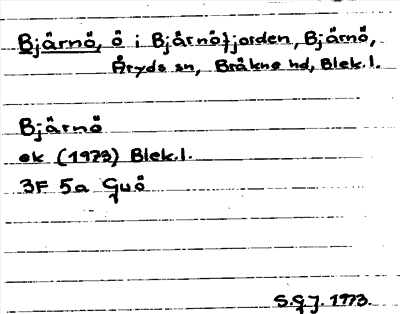 Bjärnö, ö i Bjärnöfjorden, Bjärnö,
Åryds sn, Bräkne hd, Blek.l.
Bjärnö
ek (1973) Blek.l.
3F 5a Guö
S.G.J. 1973.